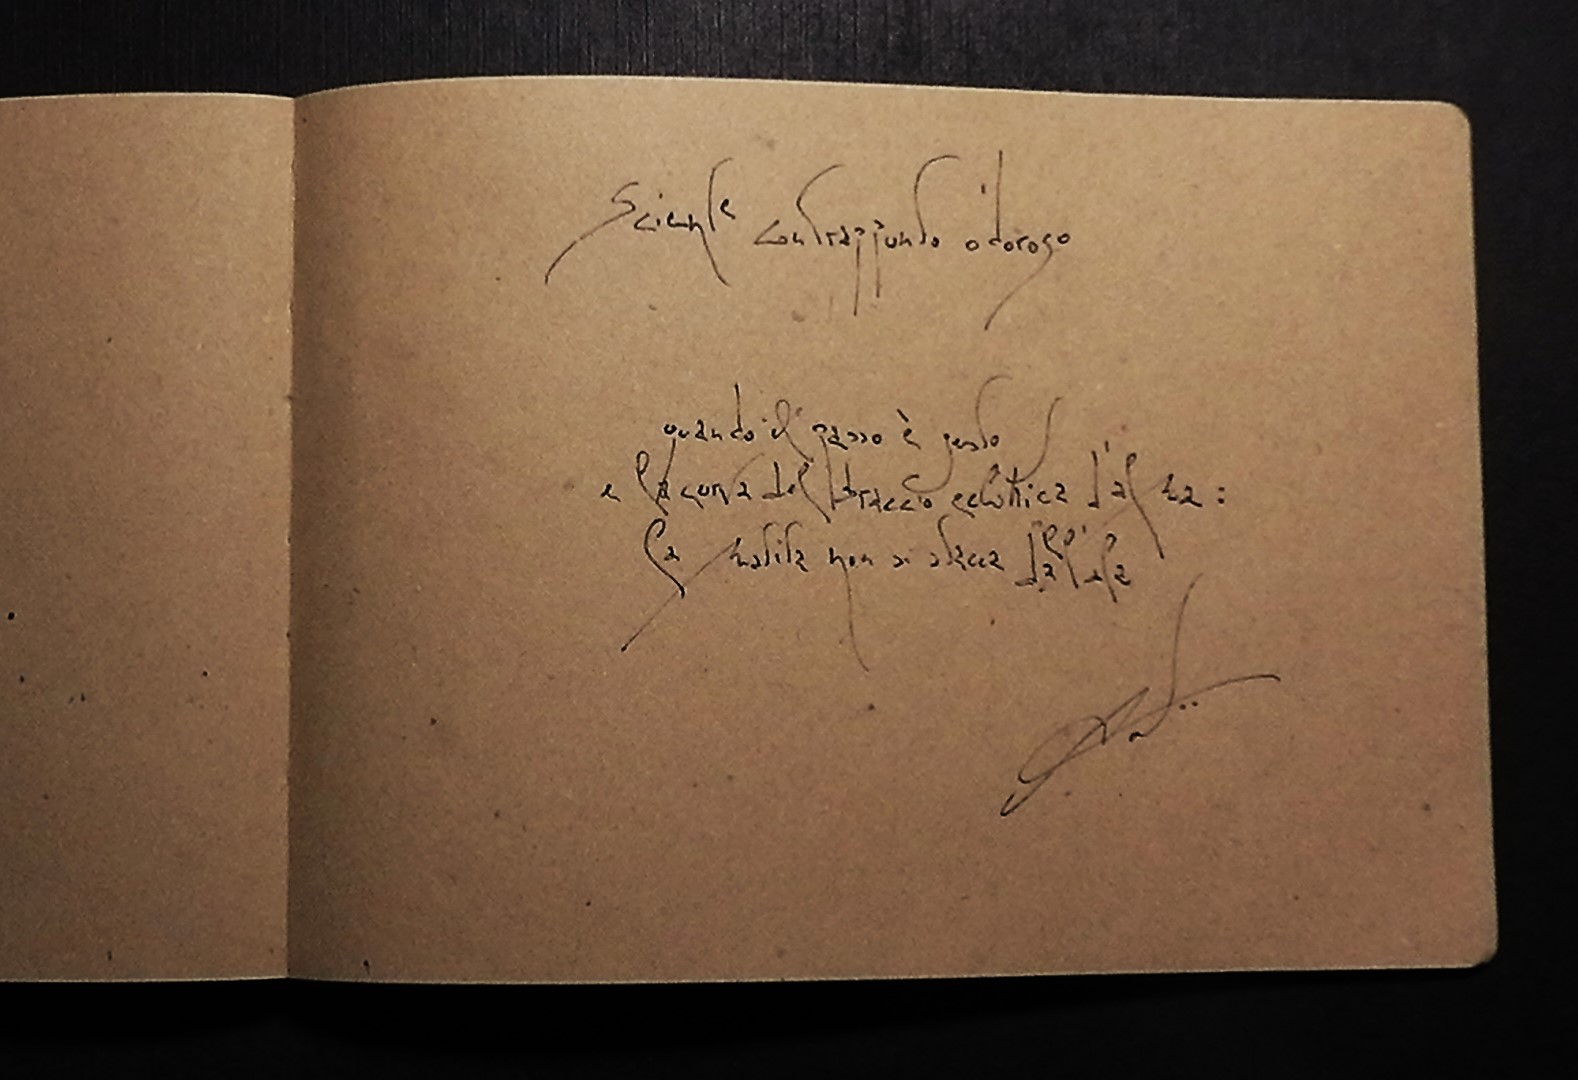 Sciente contrappunto odoroso
quando il passo è gesto
e la curva del braccio eclittica d'al
la matita non si stacca dall'ala